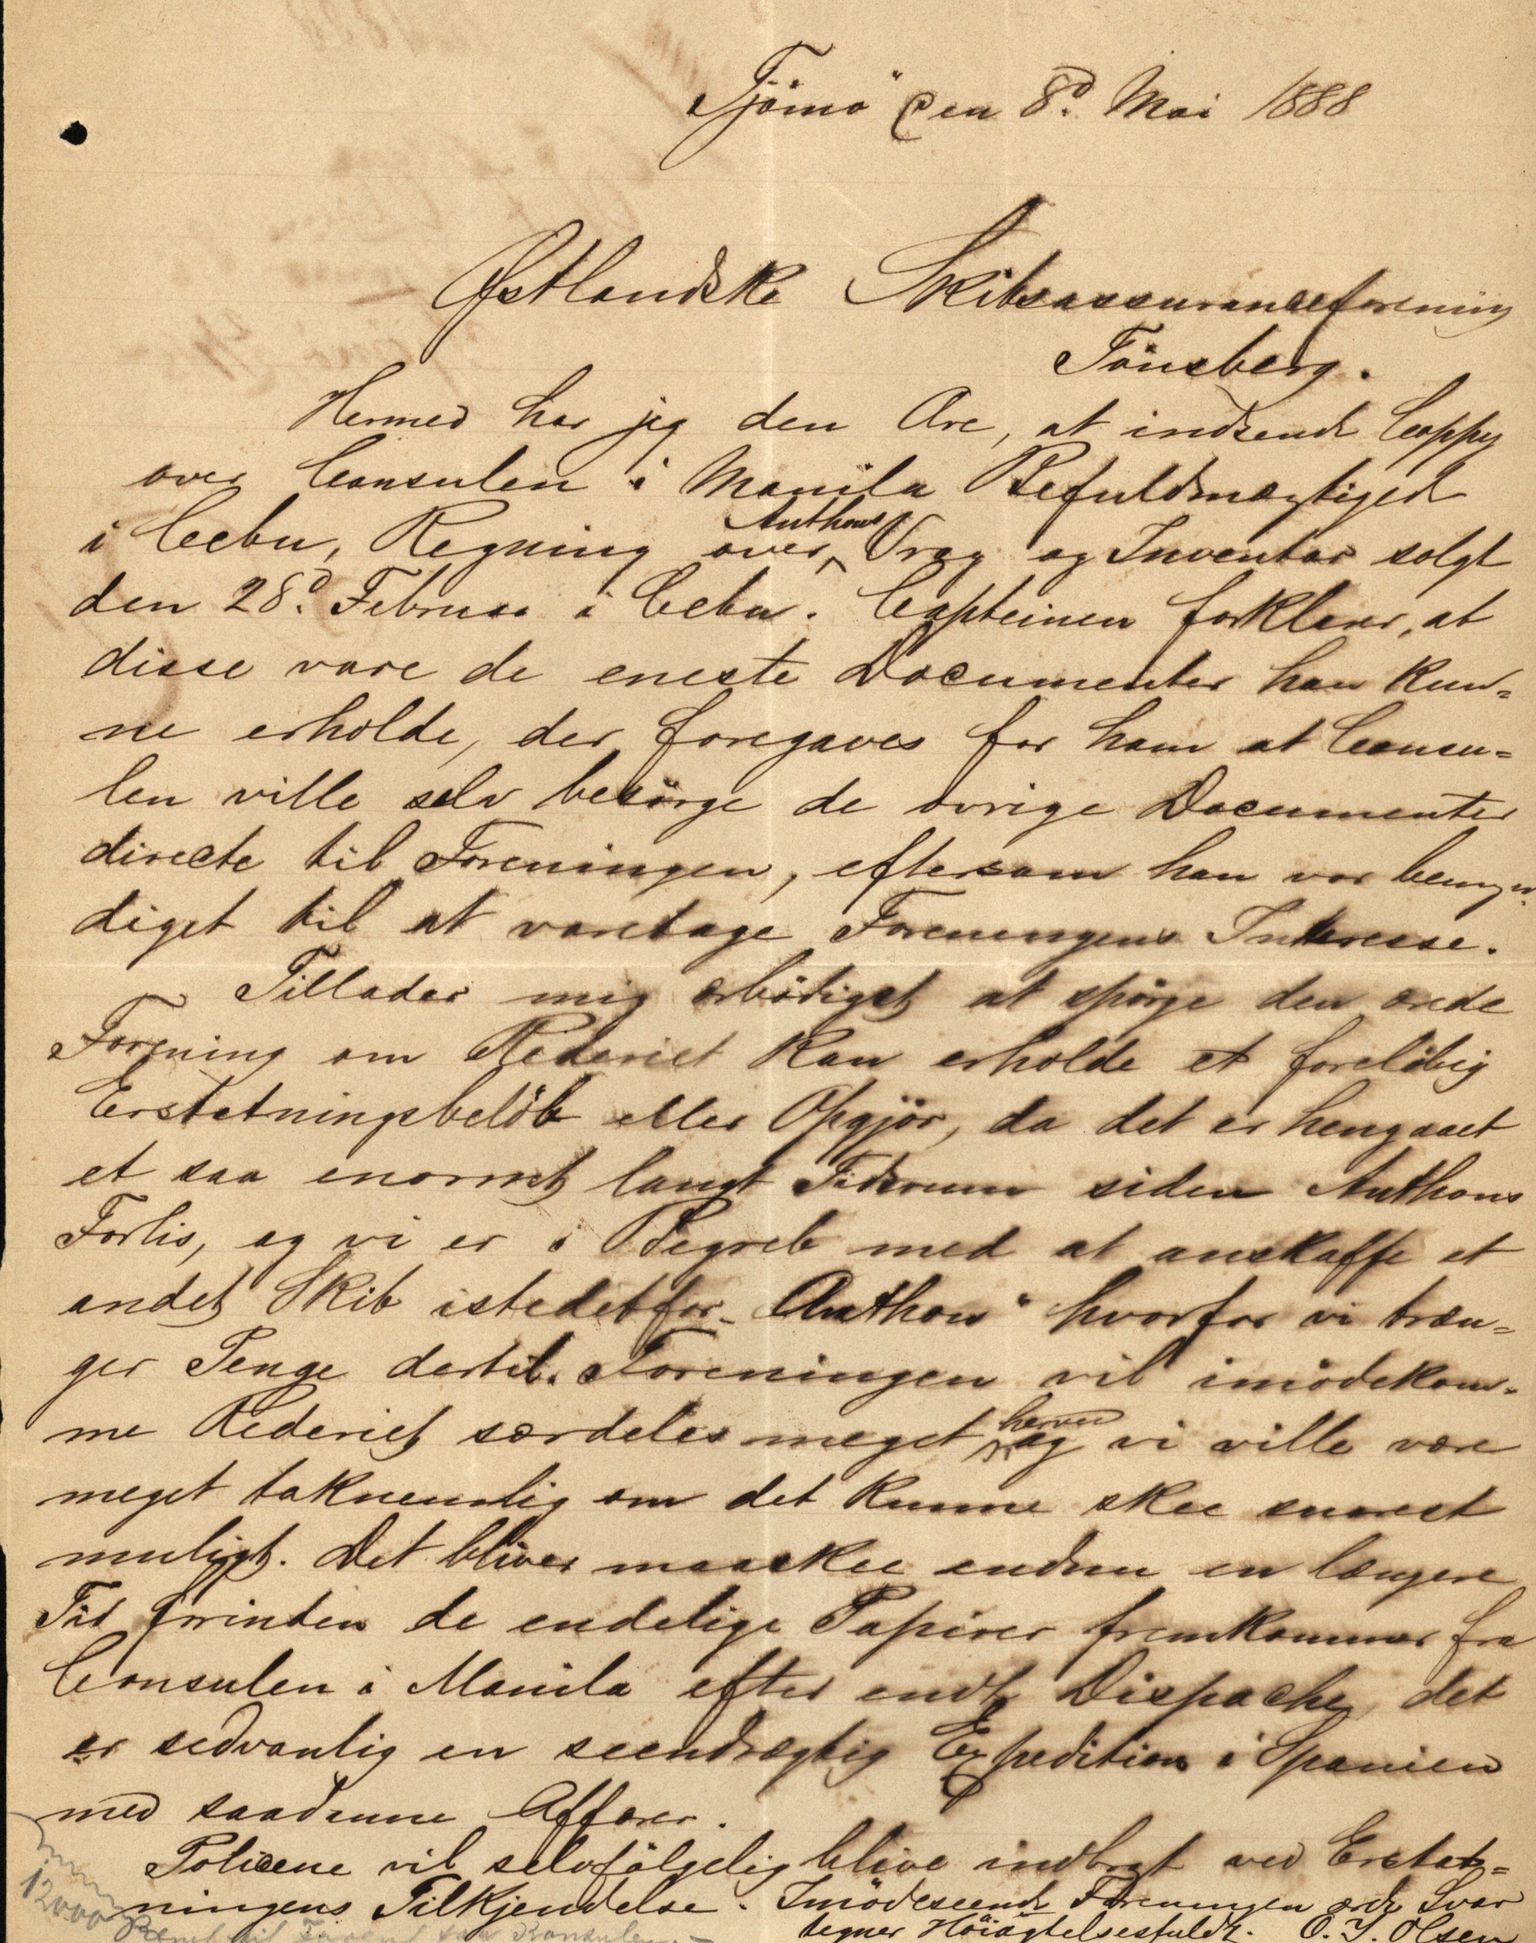 Tjömö den 8d. Mai 1888
Østlandske Skibsassuranceforening
Tönsberg.
Hermed har jeg den Ære, at indsende Coppy
over Consulen i Manila Befuldmægtiged
i Cebu, Regning over Anthons Vrag og Inventar solgt
den 28d. Februar i Cebu. Capteinen forklarer, at
disse vare de eneste Documenter han kun=
ne erholde, der foregaves for ham at Consu=
len ville selv besörge de övrige Documenter
directe til Foreningen, eftersom han var bemyn=
diget til at varetage Foreningens Interesse.
Tillader mig ærbödigst at spörge den ærede
Forening om Rederiet kan erholde et forelöbig
Erstatningsbelöb eller Opgjör, da det er hengaaet
et saa enormt langt Tidsrum siden Anthons
Forlis, og vi er i Begreb med at anskaffe et
andet Skib istedetfor „Anthon" hvorfor vi træn=
ger Penge dertil. Foreningen vil imödekom=
me Rederiet særdeles meget herved og vi ville være
meget taknemlig om det kunne skee snarest
muligt. Det bliver maaskee endnu en længere
Tid forinden de endelige Papirer fremkommer fra
Consulen i Manila efter endt Dispache, det
er sedvanlig en seendrægtig Expedition i Spanien
med saadanne Affærer.
Policene vil selvfölgelig blive indbragt ved Erstat=
ningens Tilkjendelse. Imödeseende Foreningens ærede Svar
tegner Höiagtelsesfuldt. O. J. Olsen
12000